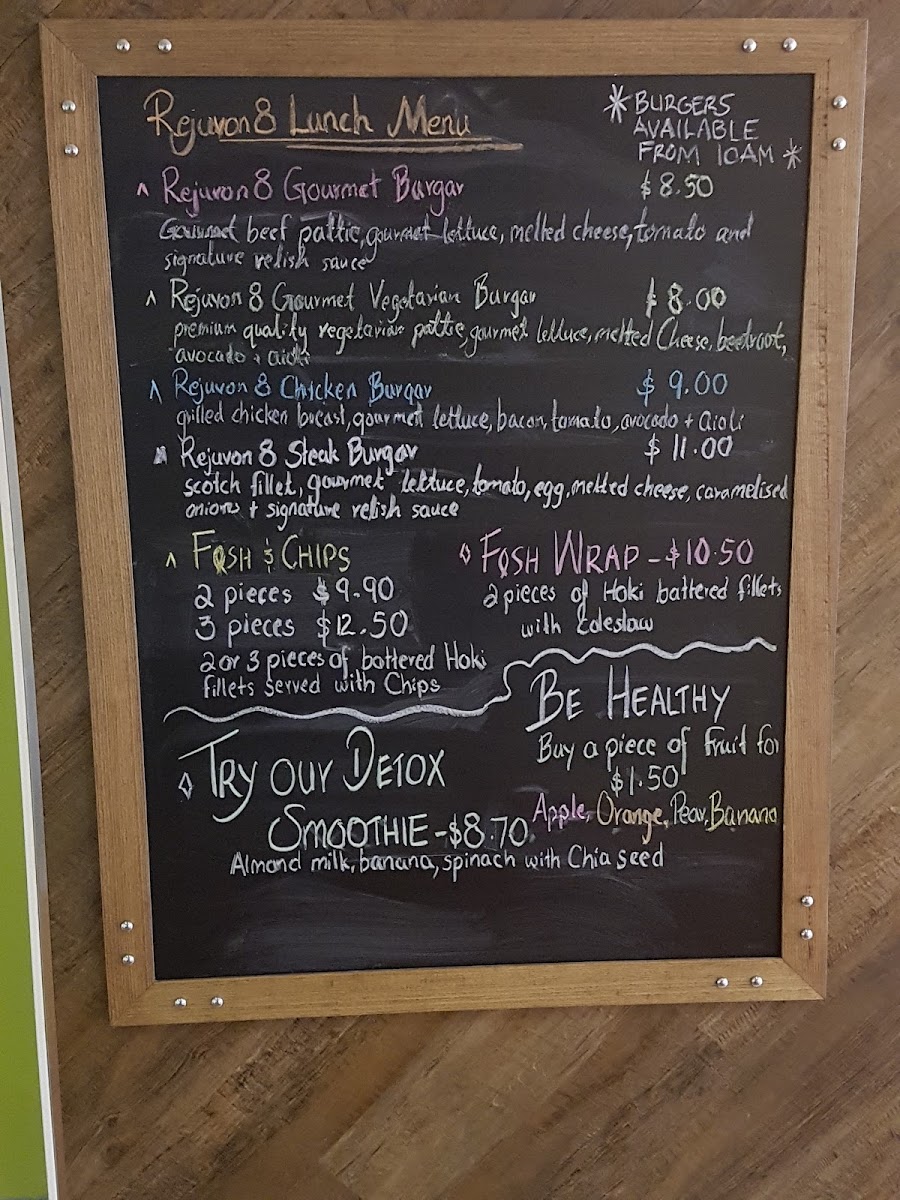 Rejuvon8 Lunch Menu
* BURGERS
AVAILABLE
FROM 10AM *
^ Rejuvon 8 Gourmet Burgar $8.50
Gourmet beef pattie, gourmet lettuce, melted cheese, tomato and
signature relish sauce
^ Rejuvon 8 Gourmet Vegetarian Burgar $8.00
premium quality vegetarian pattie, gourmet lettuce, melted Cheese, beetroot,
avocado + aioli
^ Rejuvon 8 Chicken Burgar $9.00
grilled chicken breast, gourmet lettuce, bacon, tomato, avocado + aioli
^ Rejuvon 8 Steak Burgar $11.00
scotch fillet, gourmet lettuce, tomato, egg, melted cheese, caramelised
onions + signature relish sauce
^ FUSH & CHIPS
2 pieces $9.90
3 pieces $12.50
2 or 3 pieces of battered Hoki
fillets served with Chips
◊ FUSH WRAP - $10.50
2 pieces of Hoki battered fillets
with Coleslaw
BE HEALTHY
Buy a piece of Fruit for
$1.50
Apple, Orange, Pear, Banana
◊ TRY OUR DETOX
SMOOTHIE - $8.70
Almond milk, banana, spinach with Chia seed